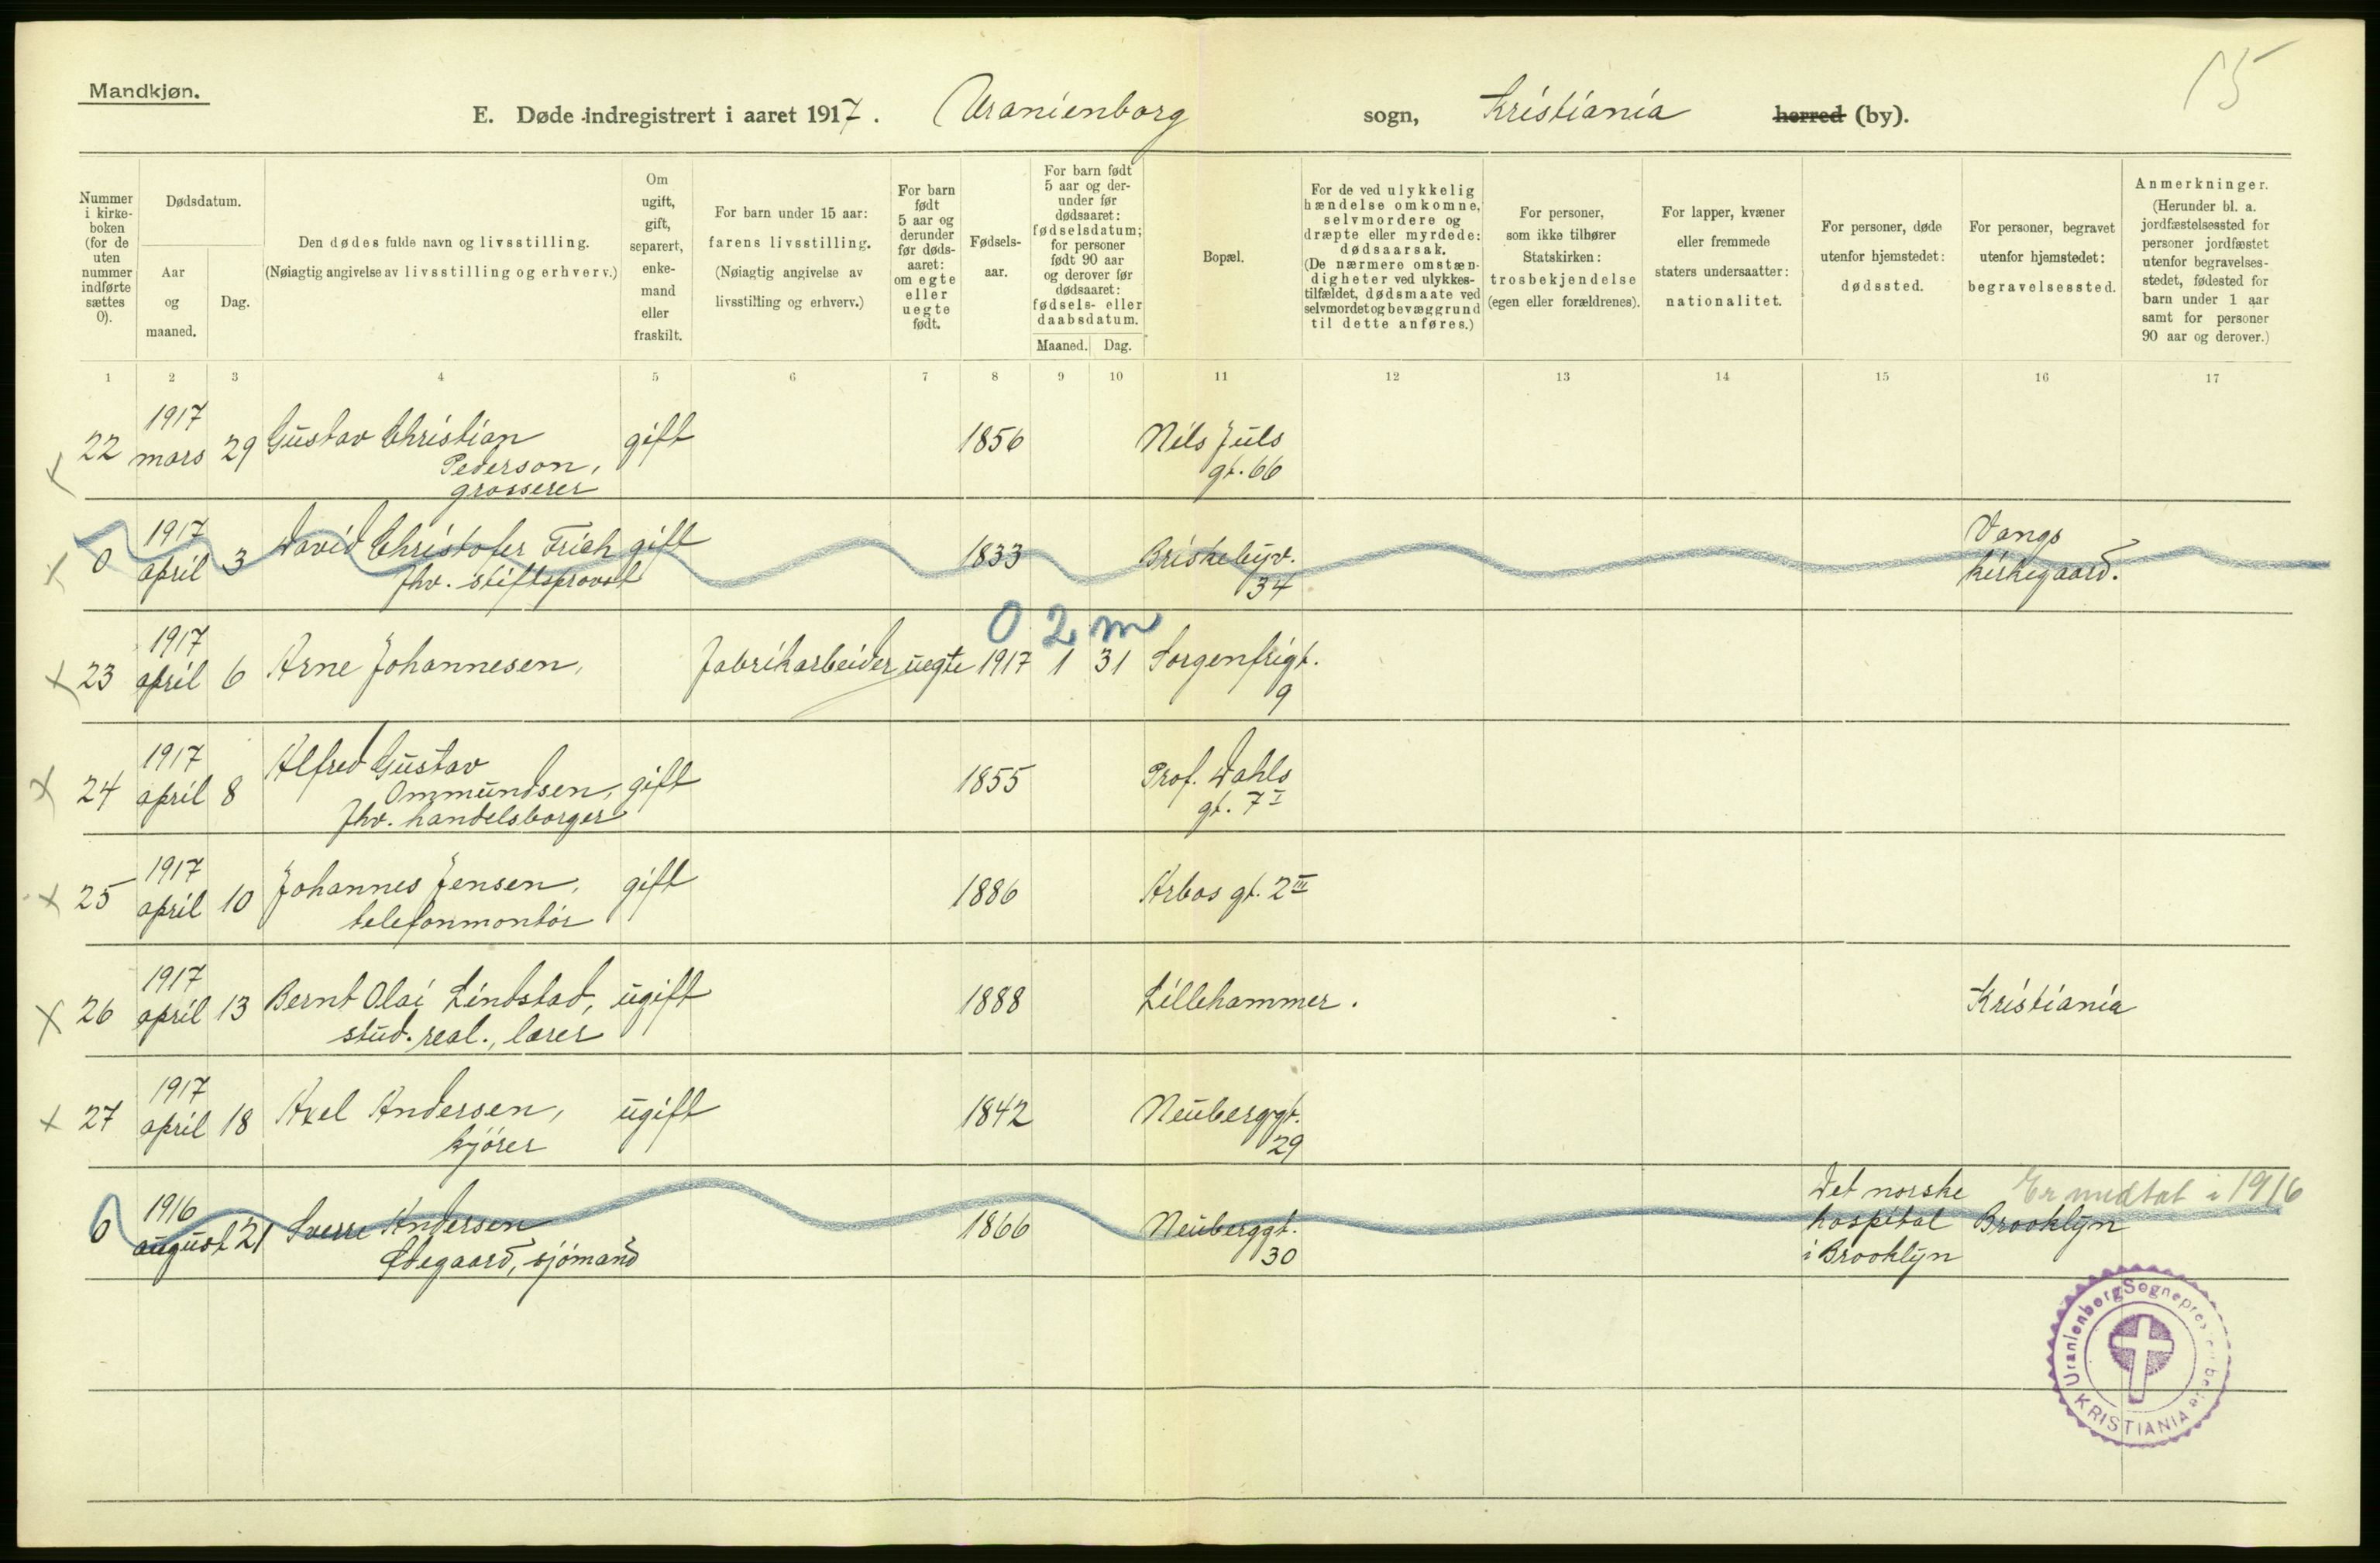 15
Mandkjøn.
E. Døde indregistrert i aaret 1917. Uranienborg sogn, Kristiania herred (by).
Nummer i kirkeboken (for de uten nummer indførte sættes 0).
Dødsdatum.
Aar og maaned.
Dag.
Den dødes fulde navn og livsstilling.
(Nøiagtig angivelse av livsstilling og erhverv.)
Om ugift, gift, separert, enkemand eller fraskilt.
For barn under 15 aar: farens livsstilling.
(Nøiagtig angivelse av livsstilling og erhverv.)
For barn født 5 aar og derunder før dødsaaret: om egte eller uegte født.
Fødselsaar.
For barn født 5 aar og derunder før dødsaaret: fødselsdatum; for personer født 90 aar og derover før dødsaaret: fødsels- eller daabsdatum.
Maaned. Dag.
Bopæl.
For de ved ulykkelig hændelse omkomne, selvmordere og dræpte eller myrdede: dødsaarsak.
(De nærmere omstændigheter ved ulykkestilfældet, dødsmaate ved selvmordet og bevæggrund til dette anføres.)
For personer, som ikke tilhører Statskirken: trosbekjendelse (egen eller forældrenes).
For lapper, kvæner eller fremmede staters undersaatter: nationalitet.
For personer, døde utenfor hjemstedet: dødssted.
For personer, begravet utenfor hjemstedet: begravelsessted.
Anmerkninger.
(Herunder bl. a. jordfæstelsessted for personer jordfæstet utenfor begravelsesstedet, fødested for barn under 1 aar samt for personer 90 aar og derover.)
1 2 3 4 5 6 7 8 9 10 11 12 13 14 15 16 17
22 1917 mars 29 Gustav Christian Pederson, grosserer gift 1856 Nils Juls gt. 66
0 1917 april 3 David Christofer Frich fhv. stiftsprovst gift 1833 Briskebyv. 34 Vangs kirkegaard.
0 2 m
23 1917 april 6 Arne Johannesen, fabrikarbeider uegte 1917 1 31 Sorgenfrigt. 9
24 1917 april 8 Alfred Gustav Ommundsen, fhv. handelsborger gift 1855 Prof. Dahls gt. 7 I
25 1917 april 10 Johannes Jensen, telefonmontör gift 1886 Arbos gt. 2 III
26 1917 april 13 Bernt Olai Lindstad, stud. real., lærer ugift 1888 Lillehammer. Kristiania
27 1917 april 18 Axel Andersen, kjörer ugift 1842 Neuberggt. 29
0 1916 august 21 Sverre Andersen Ødegaard, sjömand 1866 Neuberggt. 30 Det norske hospital i Brooklyn Brooklyn
Er medtat i 1916
Uranienborg Sogneprestembede
KRISTIANIA